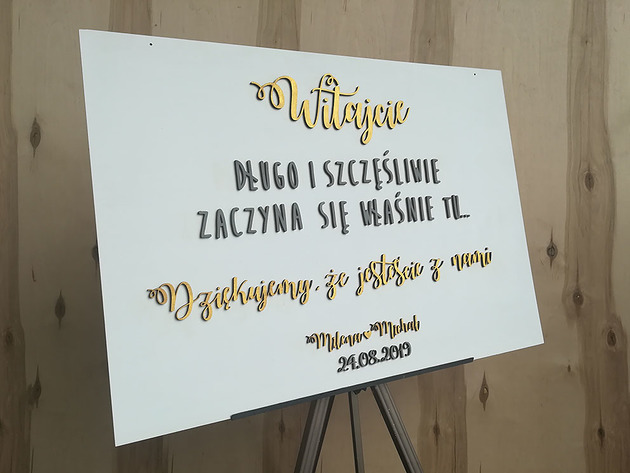 Witajcie
DŁUGO I SZCZĘŚLIWIE
ZACZYNA SIĘ WŁAŚNIE TU...
Dziękujemy, że jesteście z nami
Milena Michał
24.08.2019